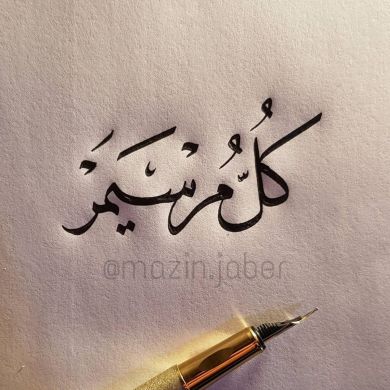 كُلُّ مُرْ سَيَمُرْ
@mazin.jaber